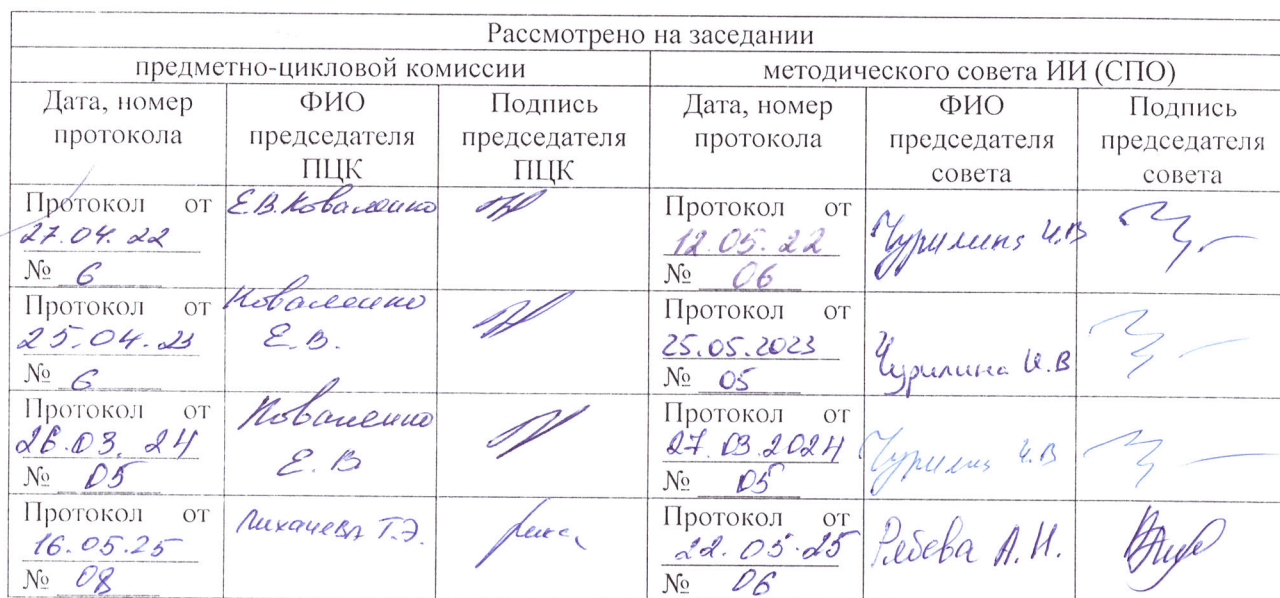 Рассмотрено на заседании
предметно-цикловой комиссии методического совета ИИ (СПО)
Дата, номер протокола
ФИО председателя ПЦК
Подпись председателя ПЦК
Дата, номер протокола
ФИО председателя совета
Подпись председателя совета
Протокол от
27.04.22
№ 6
Е.В. Коваленко
Протокол от
12.05.22
№ 06
Чурилина И.В
Протокол от
25.04.23
№ 6
Коваленко
Е.В.
Протокол от
25.05.2023
№ 05
Чурилина И.В
Протокол от
26.03.24
№ 05
Коваленко
Е.В
Протокол от
27.03.2024
№ 05
Чурилина И.В
Протокол от
16.05.25
№ 08
Лихачева Т.Э.
Протокол от
22.05.25
№ 06
Рябева А.Н.